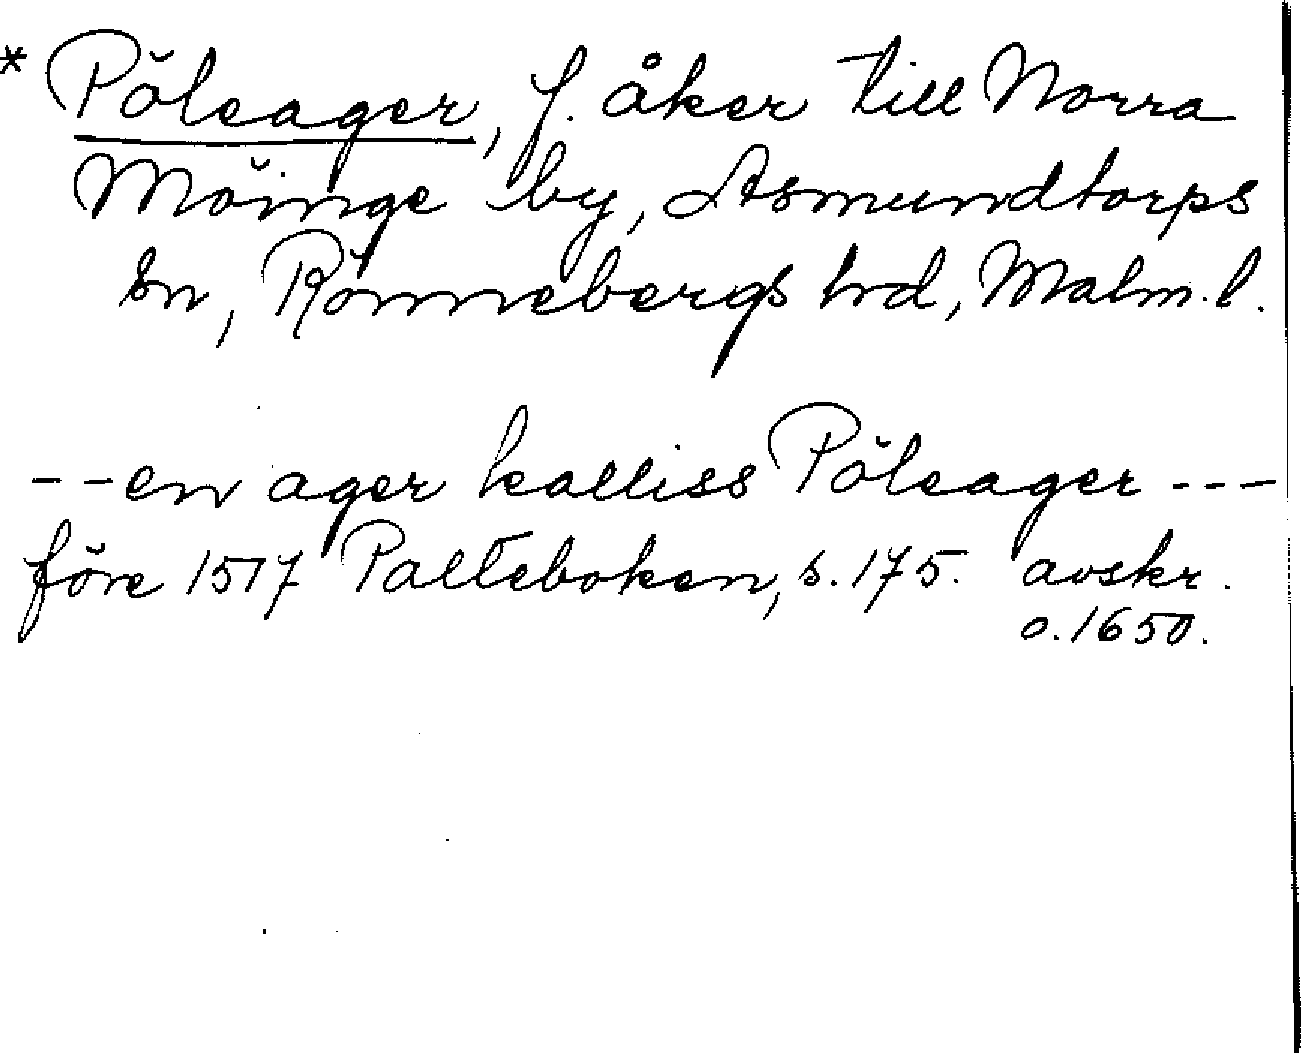 * Pöleager, f. åker till Norra
Möinge by, Asmundtorps
sn, Rönnebergs hrd, Malm. l.
--en ager kalliss Pöleager ---
före 1517 Palteboken, s. 175. avskr.
o. 1650.